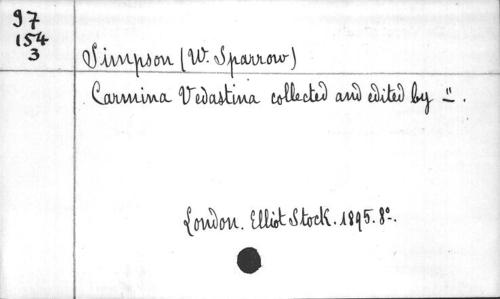 97
154
3
Simpson (W. Sparrow)
Carmina Vedastina collected and edited by =".
London. Elliot Stock. 1895. 8º.